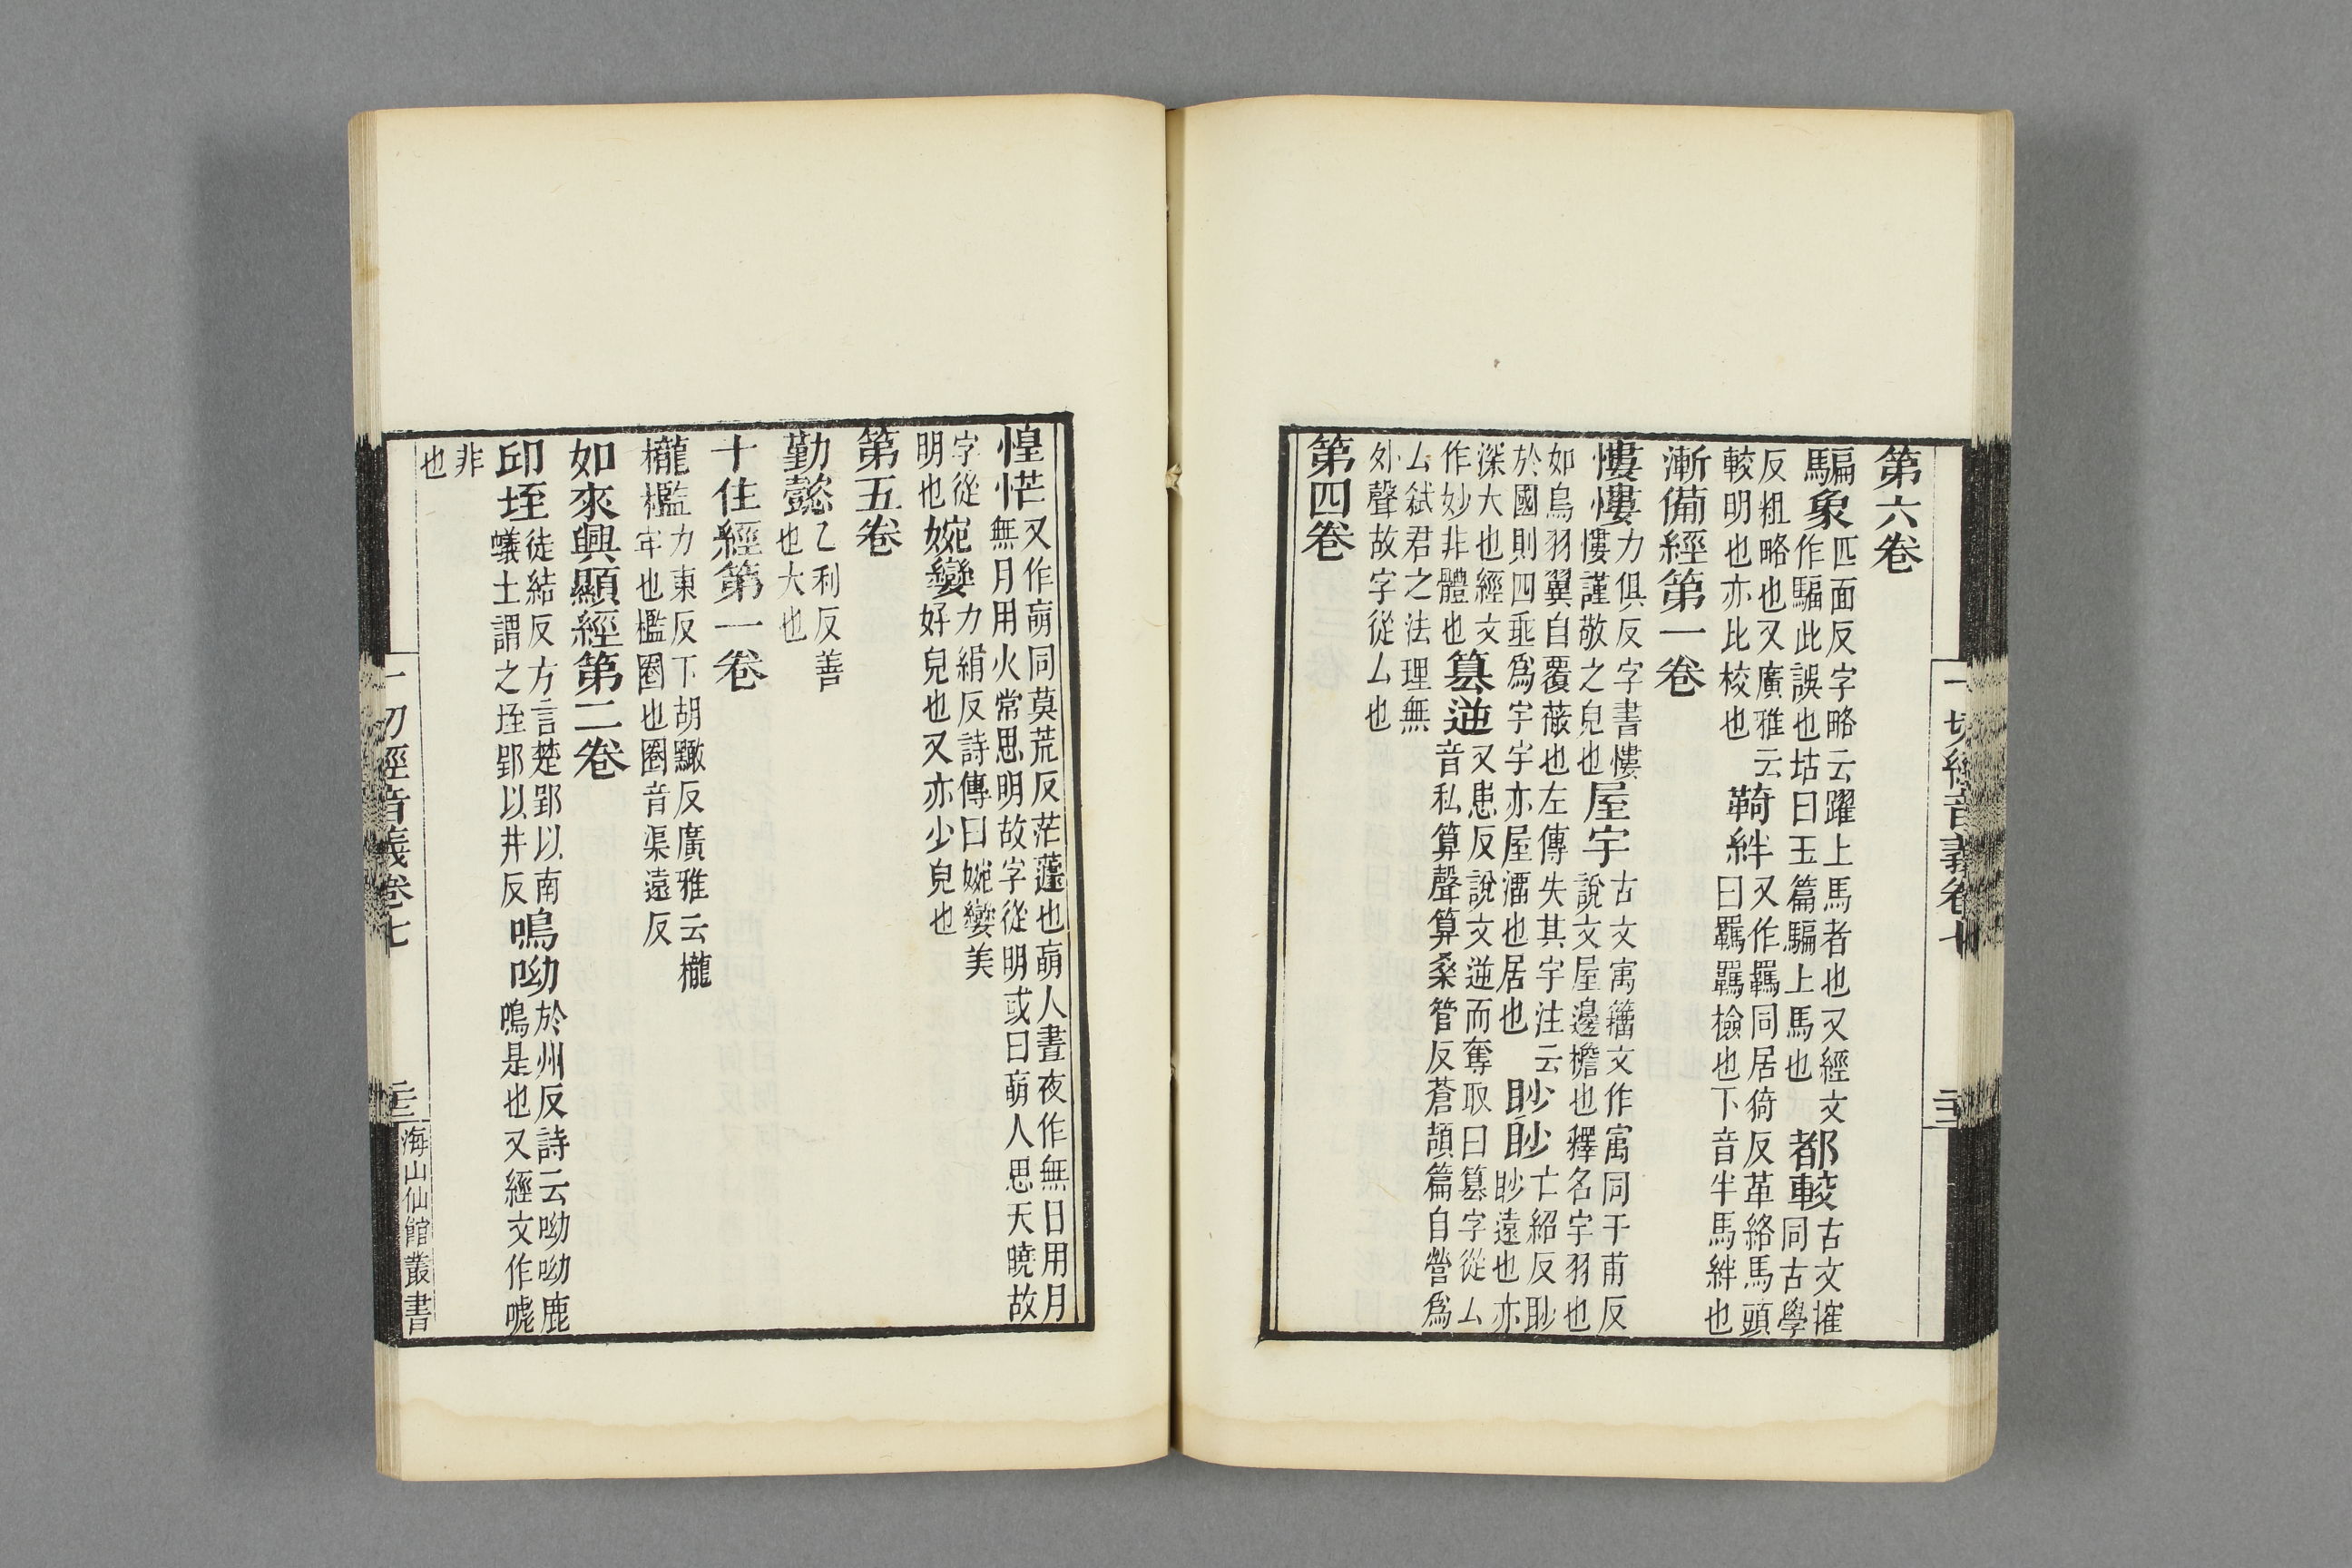 一切經音義卷七
二十二
第六卷
騙象匹面反字略云躍上馬者也又經文作騙此誤也坫曰玉篇騙上馬也都較古文搉同古學
反粗略也又廣雅云較明也亦比校也䩭絆又作羈同居猗反革絡馬頭曰羈羈檢也下音半馬絆也
漸備經第一卷
慺慺力俱反字書慺慺謹敬之皃也屋宇古文㝢籒文作㝢同于甫反說文屋邊檐也釋名宇羽也
如鳥羽翼自覆蔽也左傳失其宇注云於國則四垂爲宇宇亦屋霤也居也眇眇亡紹反眇眇遠也亦
深大也經文作妙非體也篡逆叉患反說文逆而奪取曰篡字從厶音私算聲算桑管反蒼頡篇自營爲
厶弑君之法理無外聲故字從厶也
第四卷
惶恾又作朚同莫荒反茫遽也朚人晝夜作無日用月無月用火常思明故字從明或曰朚人思天曉故
字從明也婉孌力絹反詩傳曰婉孌美好皃也又亦少皃也
第五卷
勤懿乙利反善也大也
十住經第一卷
櫳檻力東反下胡黤反廣雅云櫳牢也檻圈也圈音渠遠反
如來興顯經第二卷
邱垤徒結反方言楚郢以南蟻土謂之垤郢以井反鳴呦於州反詩云呦呦鹿鳴是也又經文作嚈
非也
一切經音義卷七
二十三
海山仙館叢書